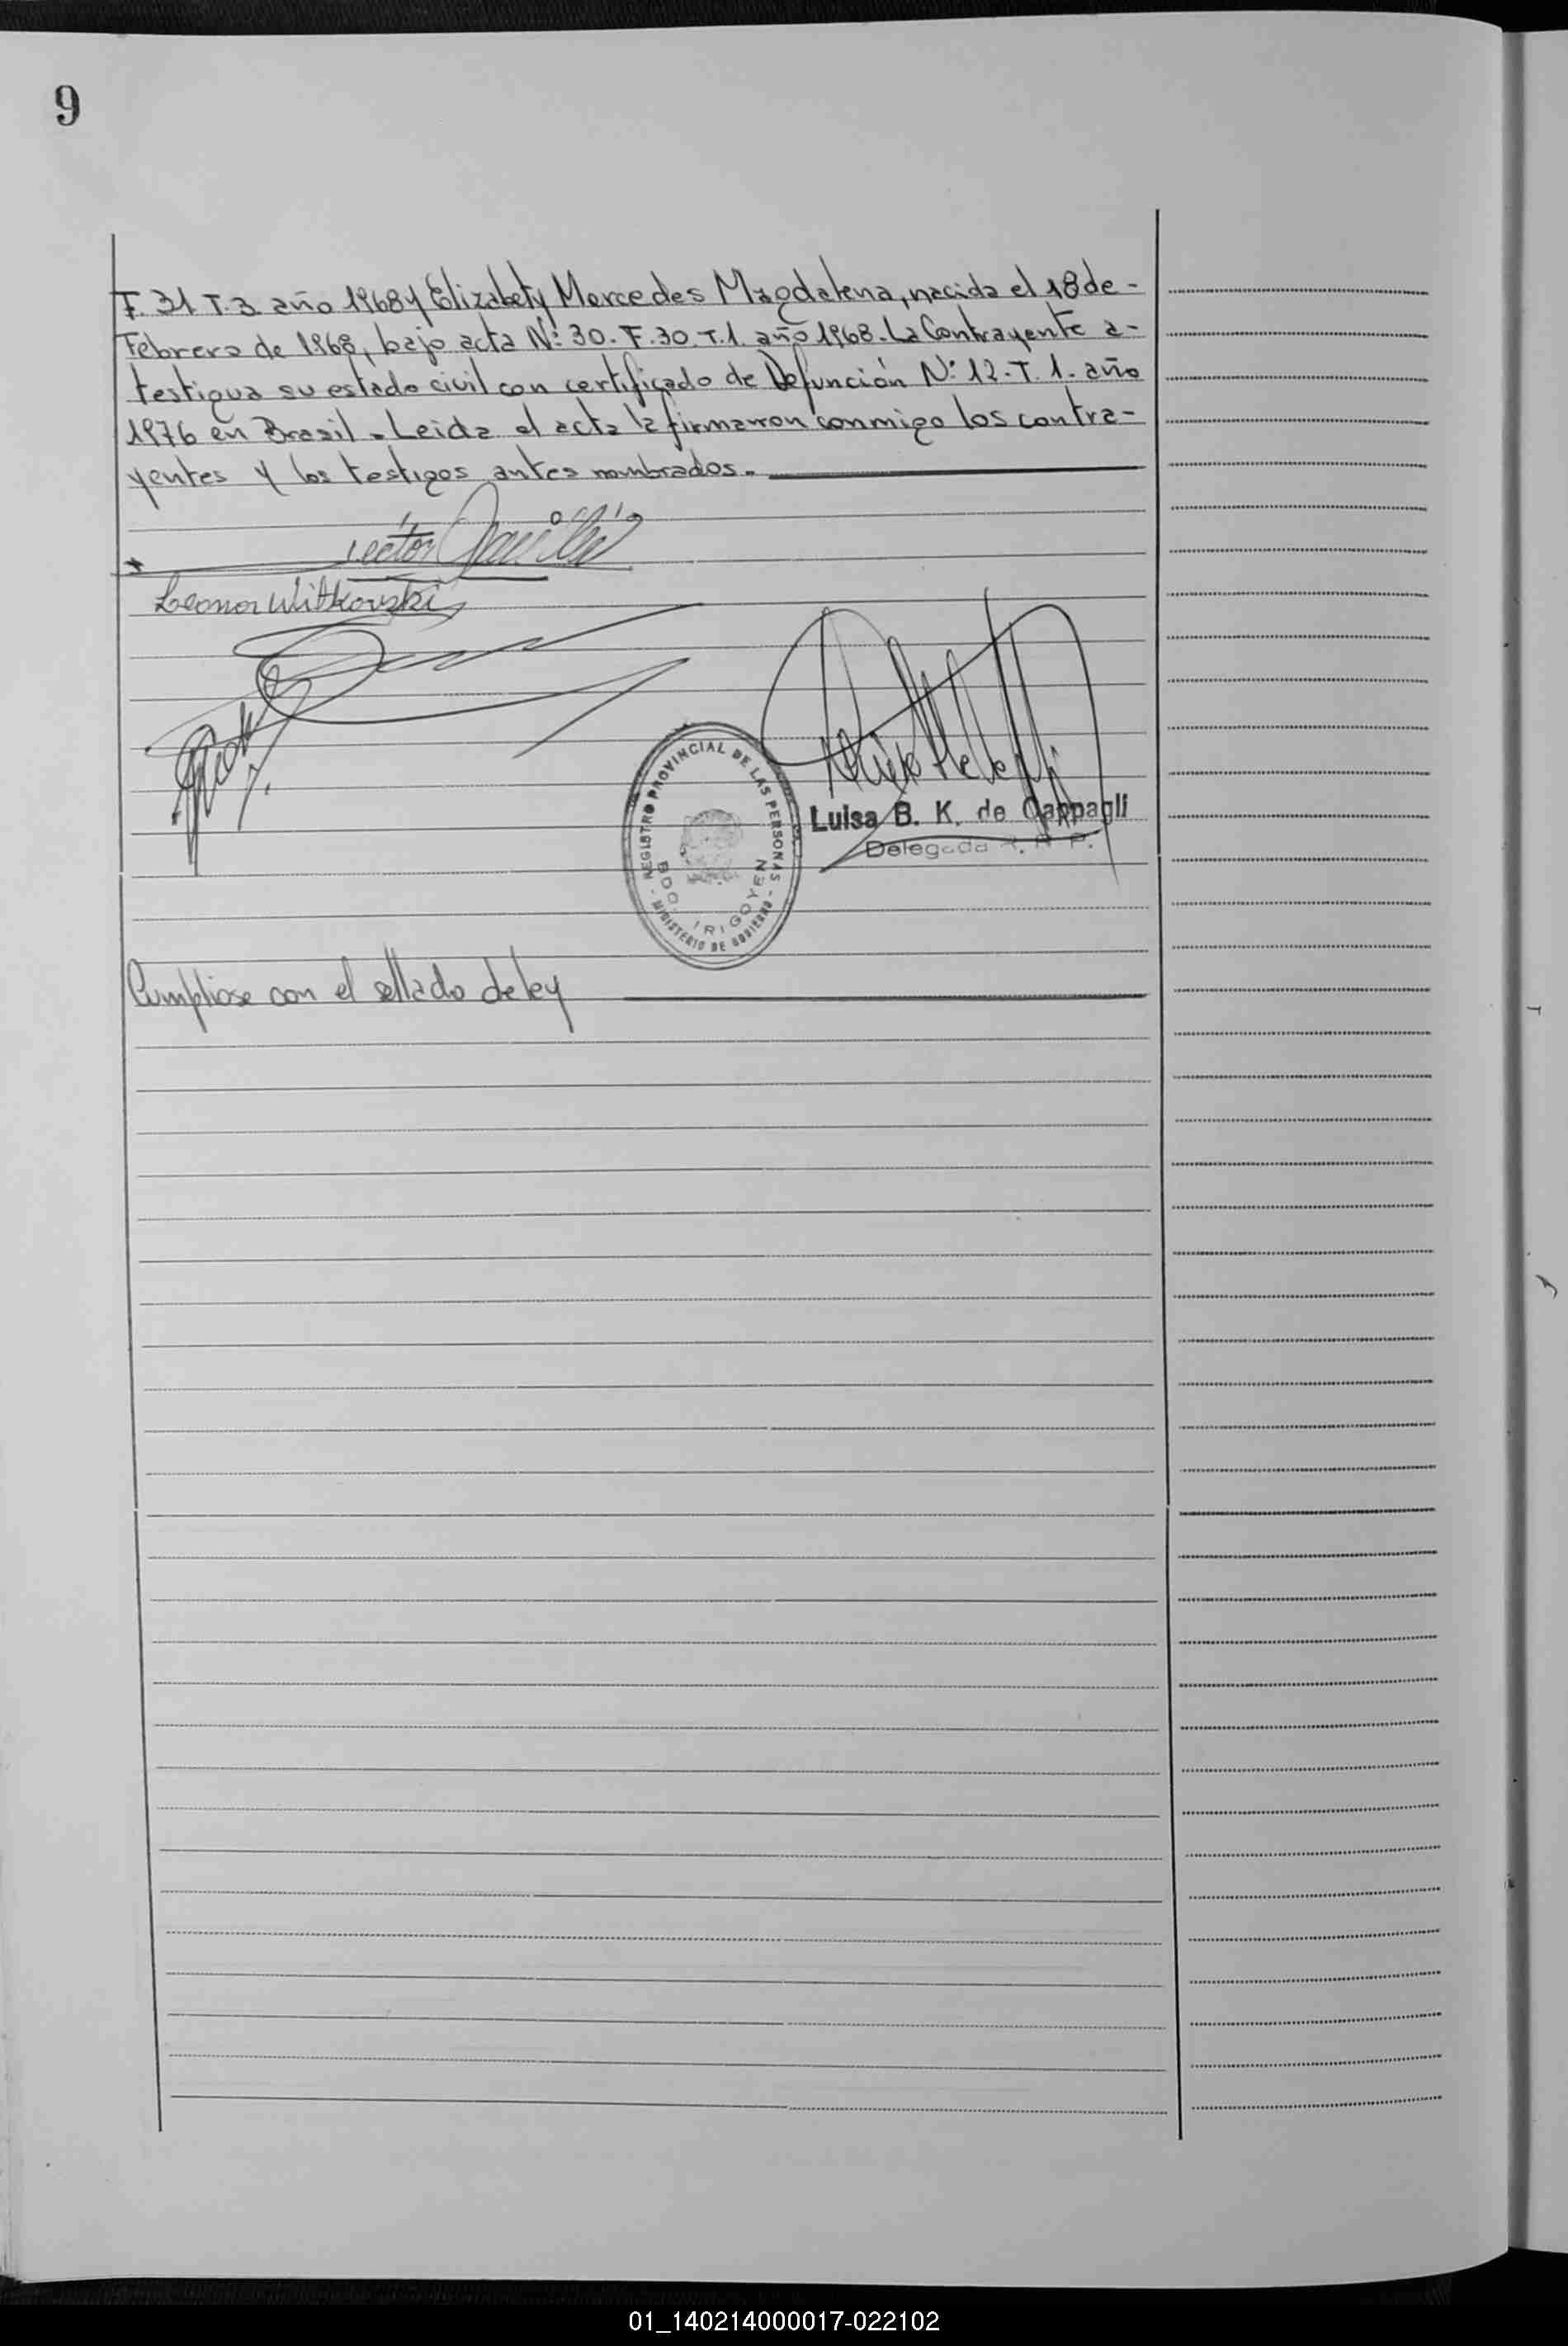 9
F. 31 T. 3. año 1968 y Elizabety Mercedes Magdalena, nacida el 18 de -
Febrero de 1968, bajo acta Nº: 30. F. 30. T. 1. año 1968. La Contrayente a-
testigua su estado civil con certificado de Defunción Nº: 12. T. 1. año
1976 en Brasil. Leida el acta la firmarron conmigo los contra-
yentes y los testigos antes nombrados.
Leonor Witkovski
REGISTRO PROVINCIAL DE LAS PERSONAS
- MINISTERIO DE GOBIERNO -
BDO. IRIGOYEN
Luisa B. K. de Cappagli
Delegada R. P. P.
Cumpliose con el sellado de ley
01_140214000017-022102